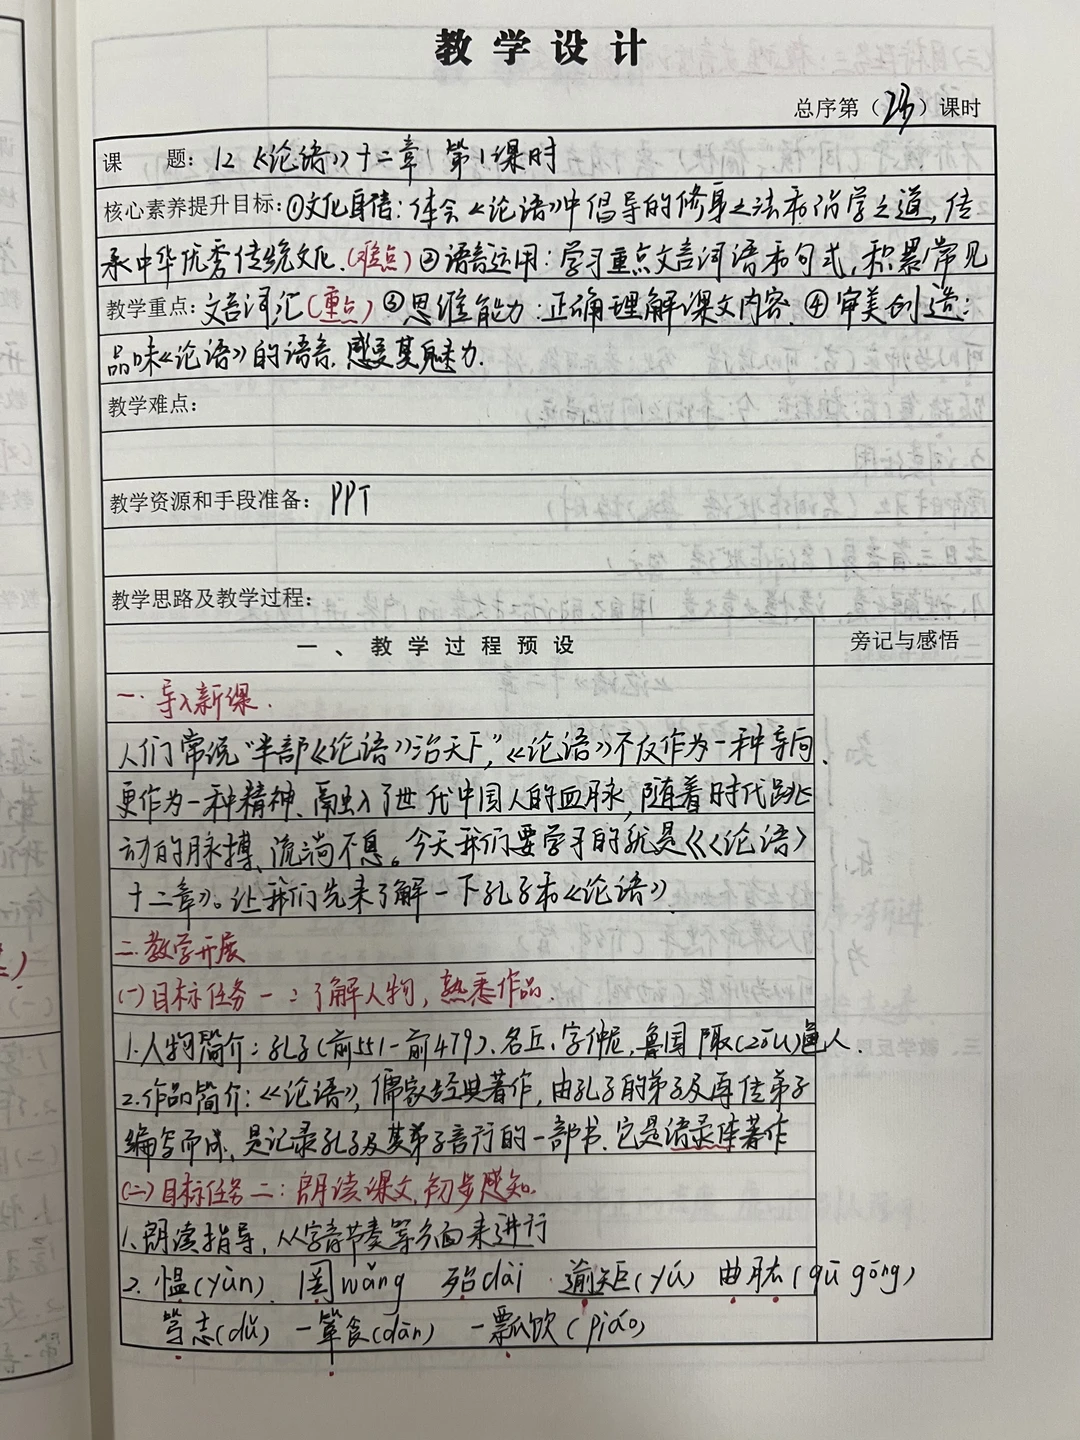 教学设计
总序第（23）课时
课 题：12《论语》十二章 第1课时
核心素养提升目标：①文化自信：体会《论语》中倡导的修身之法和治学之道，传
承中华优秀传统文化.(难点)②语言运用：学习重点文言词语和句式,积累常见
教学重点：文言词汇(重点)③思维能力:正确理解课文内容.④审美创造:
品味《论语》的语言,感受其魅力.
教学难点：
教学资源和手段准备：PPT
教学思路及教学过程：
一、教学过程预设 旁记与感悟
一.导入新课.
人们常说"半部《论语》治天下",《论语》不仅作为一种导向、
更作为一种精神、融入了世代中国人的血脉,随着时代跳
动的脉搏、流淌不息。今天我们要学习的就是《《论语》
十二章》。让我们先来了解一下孔子和《论语》
二.教学开展
(一)目标任务一：了解人物，熟悉作品.
1.人物简介：孔子(前551-前479).名丘,字仲尼,鲁国陬(zōu)邑人.
2.作品简介:《论语》,儒家经典著作,由孔子的弟子及再传弟子
编写而成,是记录孔子及其弟子言行的一部书.它是语录体著作
(二)目标任务二：朗读课文,初步感知.
1.朗读指导,从字音节奏等方面来进行
2.愠(yùn) 罔wǎng 殆dài 逾矩(yú) 曲肱(qū gōng)
笃志(dǔ) 一箪食(dān) 一瓢饮(piáo)